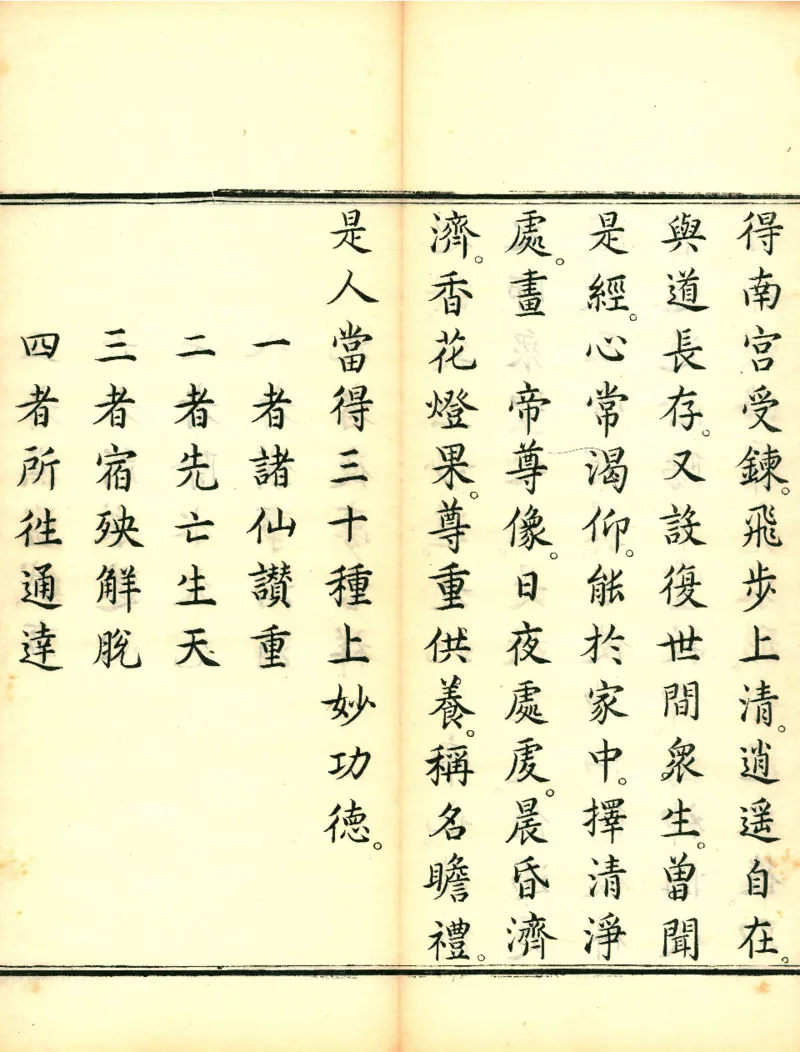 得南宮受鍊。飛步上清。逍遥自在。
與道長存。又設復世間衆生。曽聞
是經。心常渴仰。能於家中。擇清淨
處。畫　帝尊像。日夜處處。晨昏濟
濟。香花燈果。尊重供養。稱名瞻禮。
是人當得三十種上妙功德。
一者諸仙讃重
二者先亡生天
三者宿殃解脫
四者所徃通達